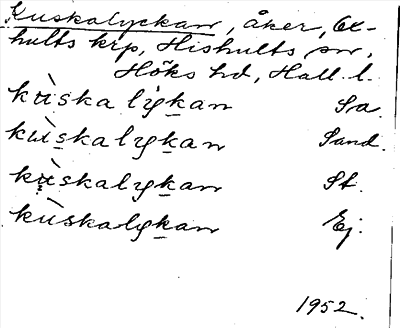 Kuskalyckan, åker, Ex-
hults krp, Hishults sn,
Höks hd, Hall. l.
kùskalykan Sa.
kùskalykan Sand.
kùskalykan St.
kùskalykan Ej.
1952.